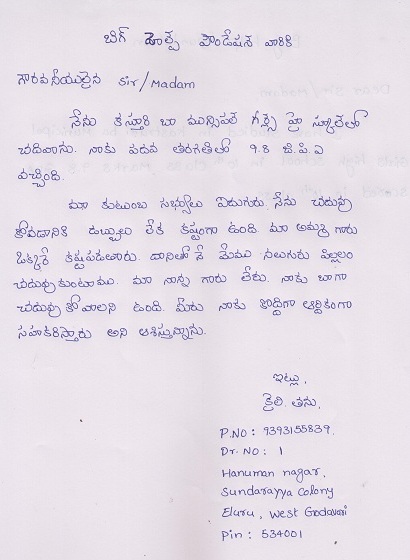 బిగ్ హెల్ప్ ఫౌండేషన్ వారికి
గౌరవనీయులైన Sir/Madam
నేను కస్తూరి బా మున్సిపల్ గర్ల్స్ హై స్కూల్లో
చదివాను. నాకు పదవ తరగతిలో 9.8 జి.పి.ఏ
వచ్చింది.
మా కుటుంబ సభ్యులు ఐదుగురు. నేను చదువు
కోవడానికి డబ్బులు లేక కష్టంగా ఉంది. మా అమ్మ గారు
ఒక్కరే కష్టపడుతారు. దానిలోనే మేము నలుగురు పిల్లలం
చదువుకుంటాము. మా నాన్న గారు లేరు. నాకు బాగా
చదువుకోవాలని ఉంది. మీరు నాకు కొద్దిగా ఆర్థికంగా
సహకరిస్తారు అని ఆశిస్తున్నాను.
ఇట్లు,
తను.
P.NO : 9393155839.
Dr. NO : 1
Hanuman nagar,
Sundarayya Colony
Eluru, West Godavari
Pin : 534001